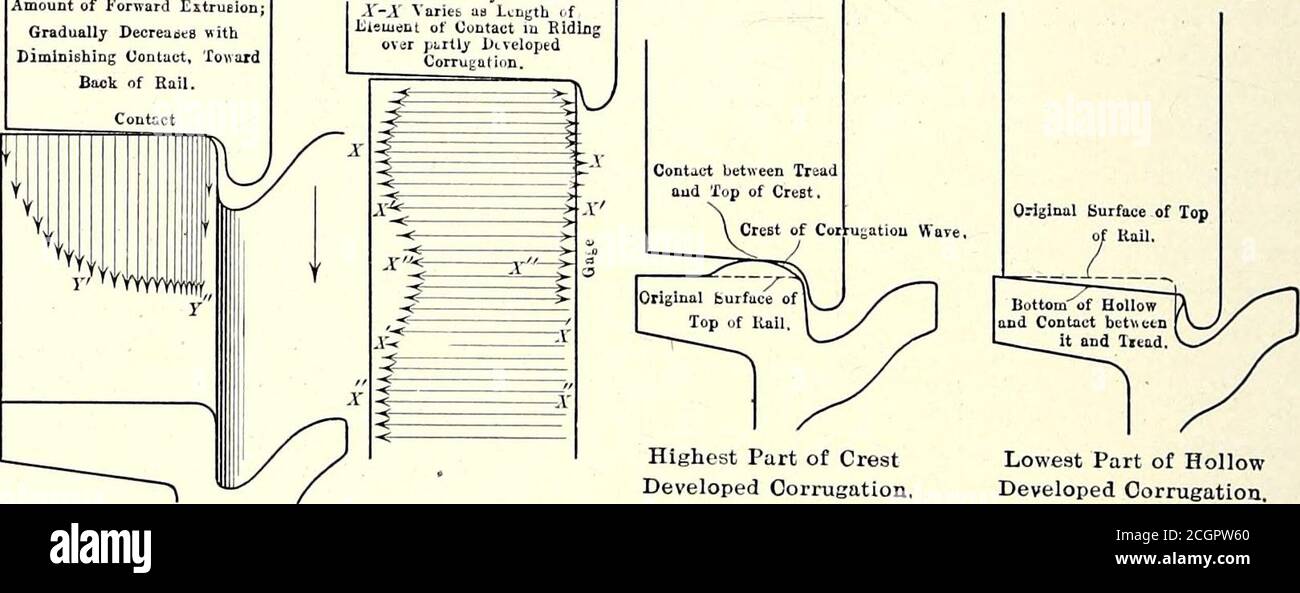 Amount of Forward Extrusion;
Gradually Decreases with
Diminishing Contact, Toward
Back of Rail.
Contact
Y'
Y"
X-X Varies as Length of
Element of Contact in Riding
over partly Developed
Corrugation.
X
X
X'
X'
X"
X"
Gage
X'
X'
X"
X"
Contact between Tread
and Top of Crest.
Crest of Corrugation Wave.
Original Surface of
Top of Rail.
Highest Part of Crest
Developed Corrugation.
Original Surface of Top
of Rail.
Bottom of Hollow
and Contact between
it and Tread.
Lowest Part of Hollow
Developed Corrugation.
alamy
alamy
a
a
alamy
Image ID: 2CGPW60
www.alamy.com